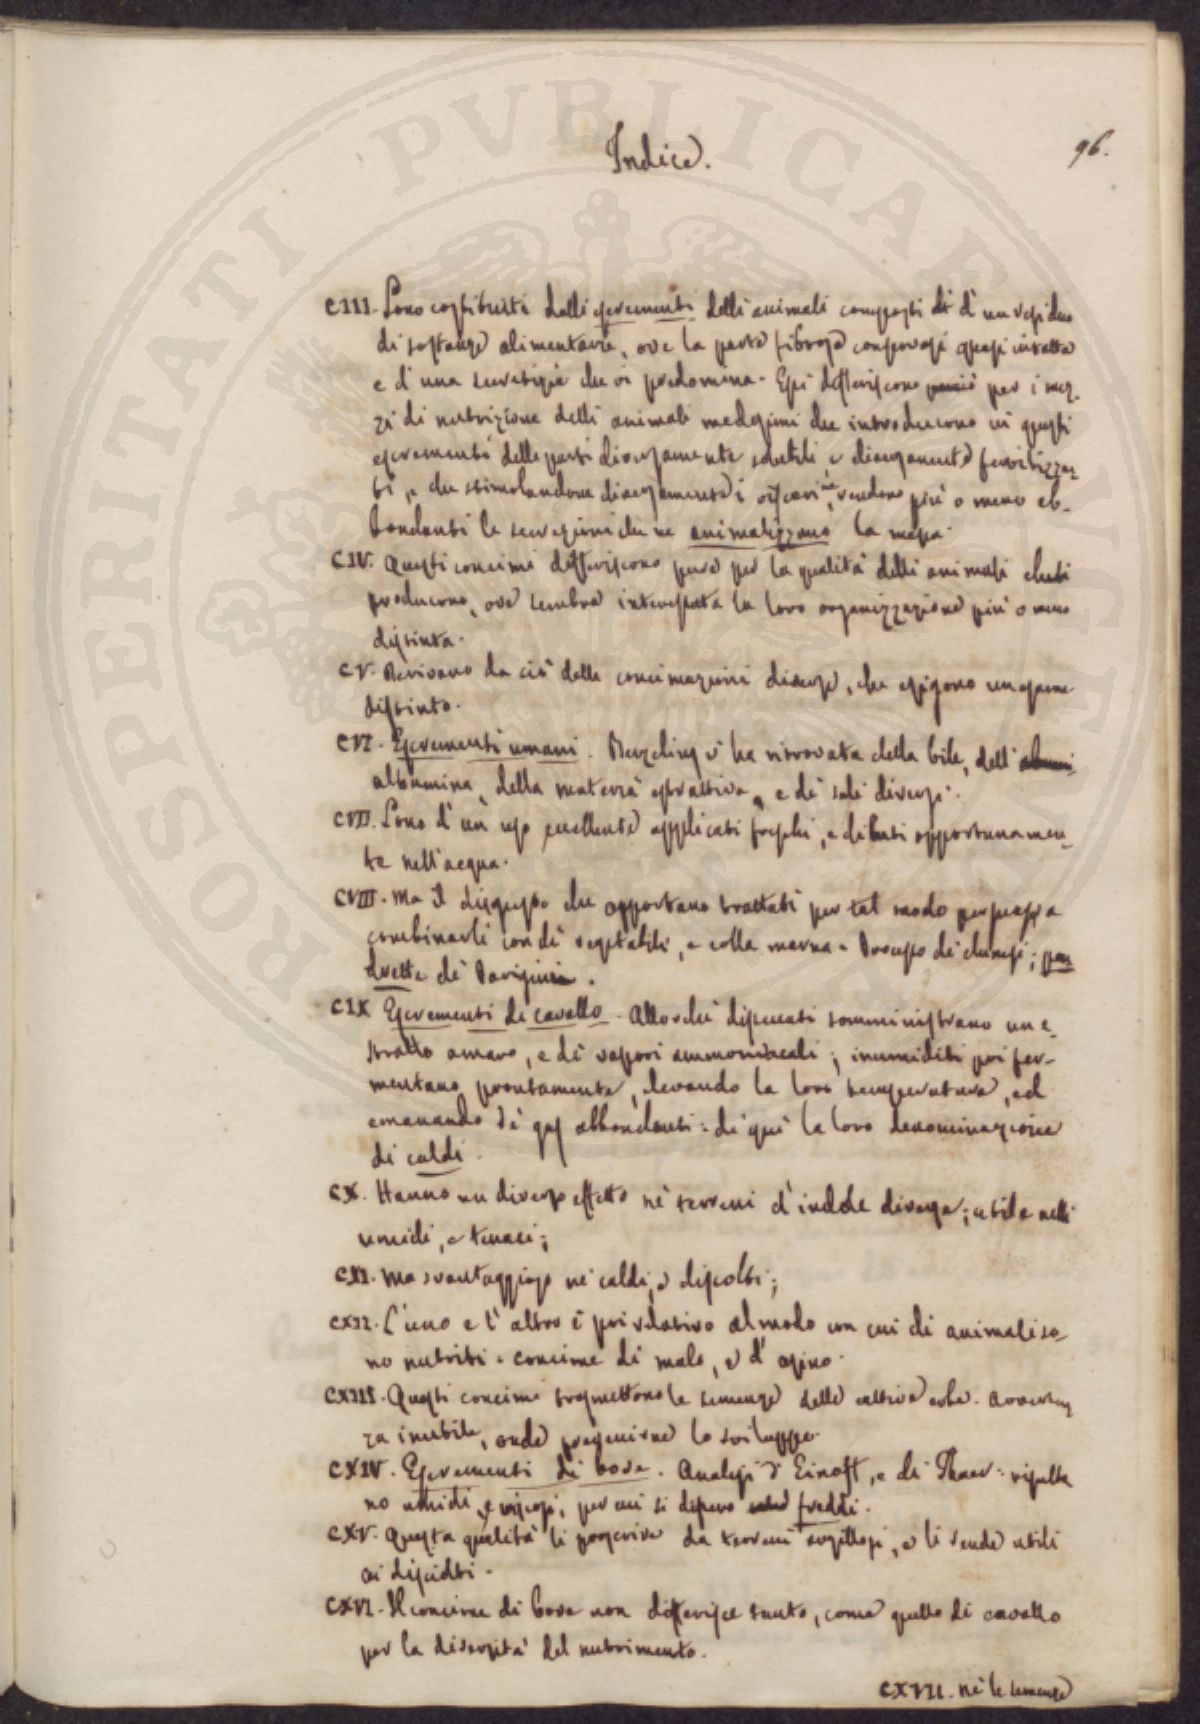 PROSPERITATI PVBLICAE AVGENDAE
96.
Indice.
CIII. Sono costituiti dalli escrementi delli animali composti di d'un residuo
di sostanze alimentarie, ove la parte fibrosa conservasi quasi intatta
e d'una secrezione che vi predomina. Essi differiscono per i mez-
zi di nutrizione delli animali medesimi che introducono in questi
escrementi delle parti diversamente solubili e diversamente fertilizzan-
ti, e che stimolandone diversamente i visceri ne rendono più o meno ab-
bondanti le secrezioni che ne animalizzano la massa.
CIV. Questi concimi differiscono pure per la qualità delli animali che li
producono, ove sembra interessata la loro organizzazione più o meno
distinta.
CV. Derivano da ciò delle concimazioni diverse, che esigono un esame
distinto.
CVI. Escrementi umani. Berzelius v'ha ritrovata della bile, dell'
albumina, della materia estrattiva, e de' sali diversi.
CVII. Sono d'un uso eccellente applicati freschi, e diluti opportunamen-
te nell'acqua.
CVIII. Ma il disgusto che apportano trattati per tal modo persuase a
combinarli con de' vegetabili, e colla marna. Processo de' chinesi; pou-
drette de' Parigini.
CIX Escrementi di cavallo. Allorché disseccati somministrano un e-
stratto amaro, e de' vapori ammoniacali; inumiditi poi fer-
mentano prontamente, elevando la loro temperatura, ed
emanando de' gas abbondanti: di qui la loro denominazione
di caldi.
CX. Hanno un diverso effetto ne' terreni d'indole diversa; utile nelli
umidi, e tenaci;
CXI. Ma svantaggioso ne' caldi, e disciolti;
CXII. L'uno e l'altro è poi relativo al modo con cui di animali so-
no nutriti. concime di mulo, e d'asino.
CXIII. Questi concimi trasmettono le semenze delle cattive erbe. Avverten-
za inutile, onde prevenirne lo sviluppo.
CXIV. Escrementi di bove. Analisi d'Einoff, e di Thaer: risulta-
no umidi, e viscosi, per cui si dissero freddi.
CXV. Questa qualità li proscrive da terreni argillosi, e li rende utili
ai disciolti.
CXVI. Il concime di bove non differisce tanto, come quello di cavallo
per la diversità del nutrimento.
CXVII. Nè le semente